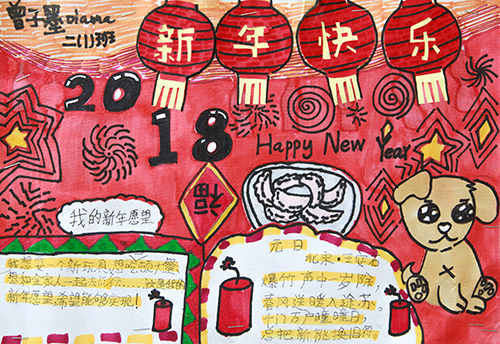 曾子墨 Diana
二(1)班
新年快乐
2018
Happy New Year
福
我的新年愿望
我想要一个新玩具,想吃顿大餐,
想和全家人一起去旅行。这是我的
新年愿望,希望能够实现!
元日
北宋·王安石
爆竹声中一岁除
春风送暖入屠苏。
千门万户曈曈日,
总把新桃换旧符。